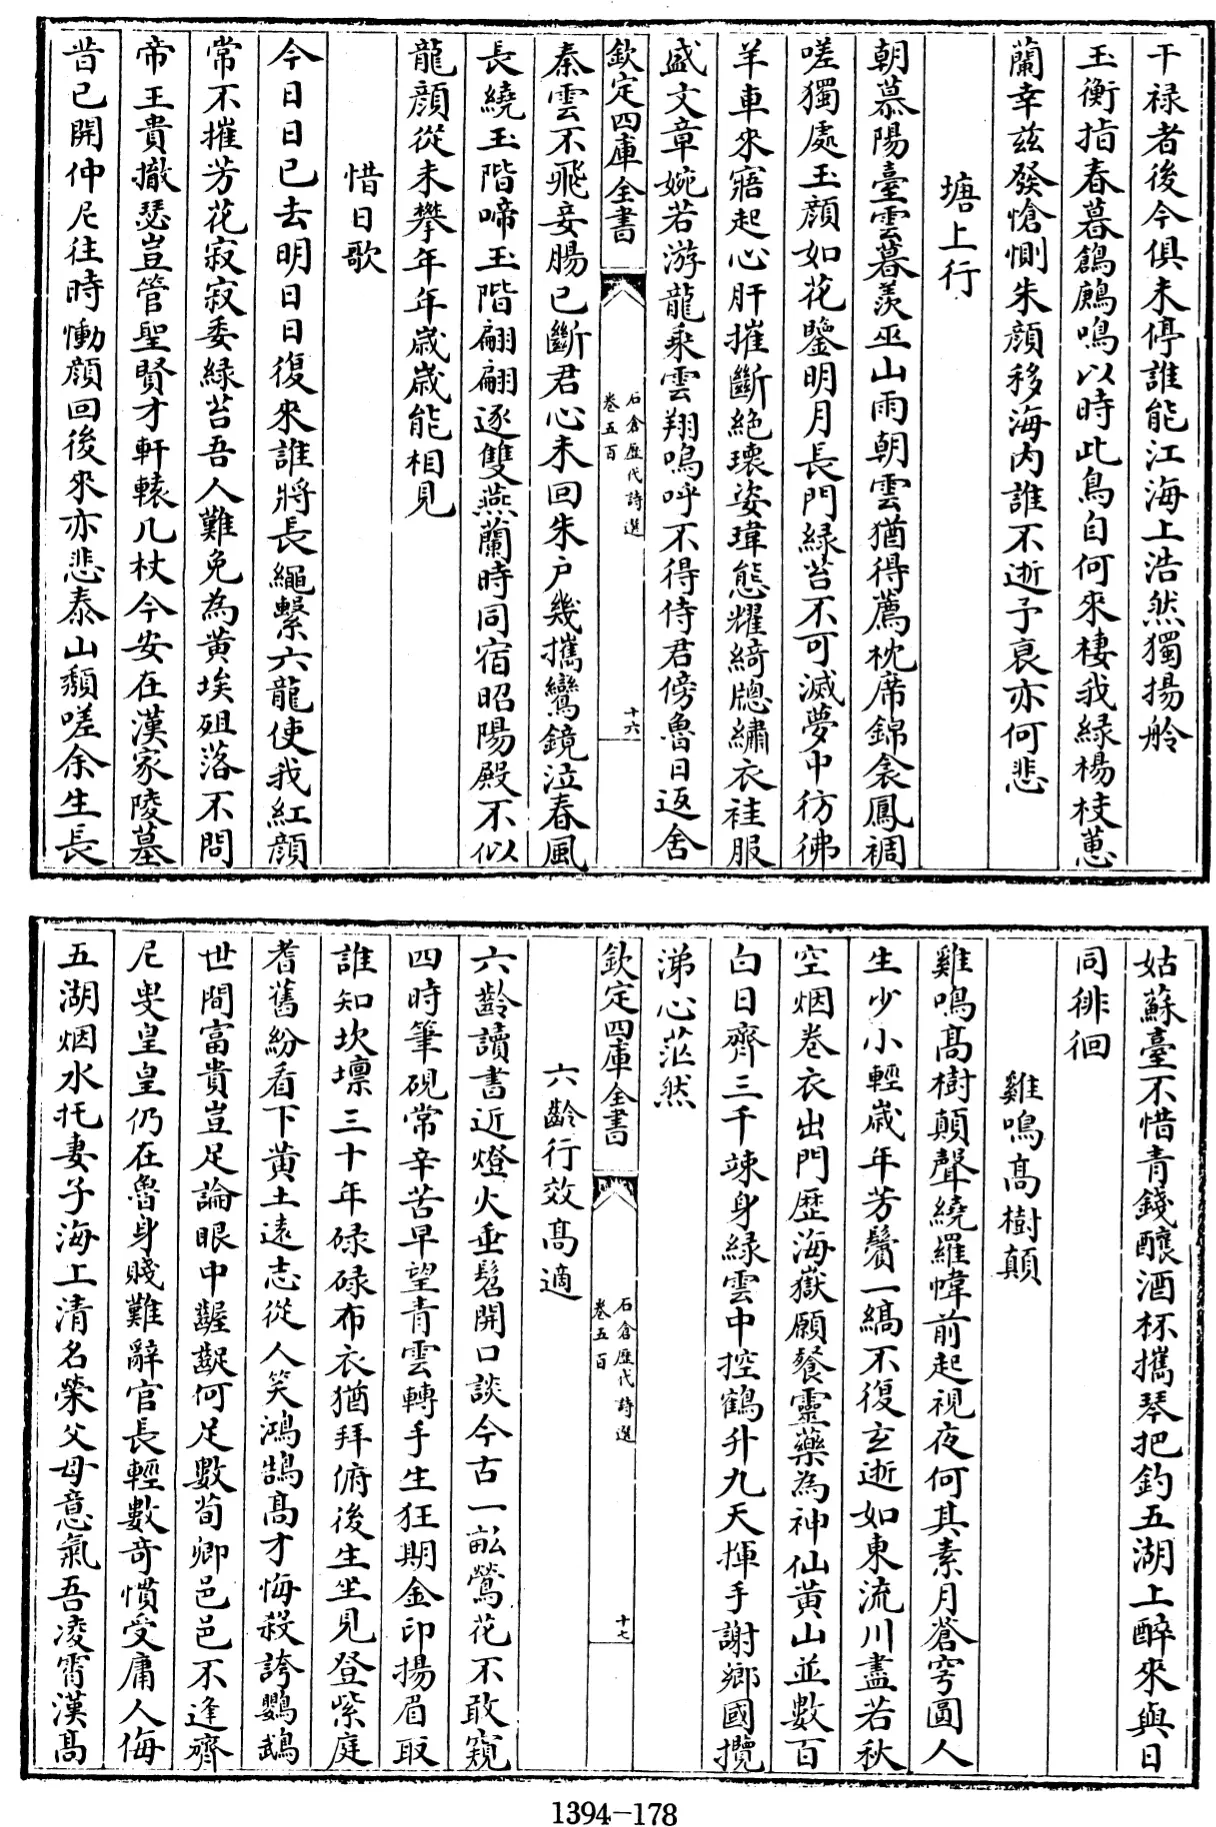 干禄者後今俱未停誰能江海上浩然獨揚舲
玉衡指春暮鶬鶊鳴以時此鳥自何來棲我緑楊枝蕙
蘭幸兹發愴惻朱顔移海内誰不逝予哀亦何悲
塘上行
朝慕陽臺雲暮羡巫山雨朝雲猶得薦枕席錦衾鳳裯
嗟獨處玉顔如花鑒明月長門緑苔不可滅夢中彷彿
羊車來寤起心肝摧斷絶瓌姿瑋態耀綺牕繡衣袿服
盛文章婉若游龍乘雲翔嗚呼不得侍君傍魯日返舍
欽定四庫全書
石倉歷代詩選
卷五百
十六
秦雲不飛妾腸已斷君心未回朱户幾攜鸞鏡泣春風
長繞玉階啼玉階翩翩逐雙燕蘭時同宿昭陽殿不似
龍顔從未攀年年歲歲能相見
惜日歌
今日日已去明日日復來誰將長繩繫六龍使我紅顔
常不摧芳花寂寂委緑苔吾人難免為黄埃殂落不問
帝王貴撤瑟豈管聖賢才軒轅几杖今安在漢家陵墓
昔已開仲尼往時慟顔回後來亦悲泰山頽嗟余生長
姑蘇臺不惜青錢釀酒杯攜琴把釣五湖上醉來與日
同徘徊
雞鳴髙樹顛
雞鳴髙樹顛聲繞羅幃前起視夜何其素月蒼穹圓人
生少小輕歳年芳鬢一縞不復玄逝如東流川盡若秋
空烟卷衣出門歴海嶽願餐靈藥為神仙黄山並數百
白日齊三千竦身緑雲中控鶴升九天揮手謝鄉國攬
涕心茫然
欽定四庫全書
石倉歷代詩選
卷五百
十七
六齡行效髙適
六齡讀書近燈火垂髫開口談今古一畝鶯花不敢窺
四時筆硯常辛苦早望青雲轉手生狂期金印揚眉取
誰知坎壈三十年碌碌布衣猶拜俯後生坐見登紫庭
耆舊紛看下黄土逺志從人笑鴻鵠髙才悔殺誇鸚鵡
世間富貴豈足論眼中齷齪何足數荀卿邑邑不逢齊
尼叟皇皇仍在魯身賤難辭官長輕數竒慣受庸人侮
五湖烟水托妻子海上清名榮父母意氣吾凌霄漢髙
1394-178